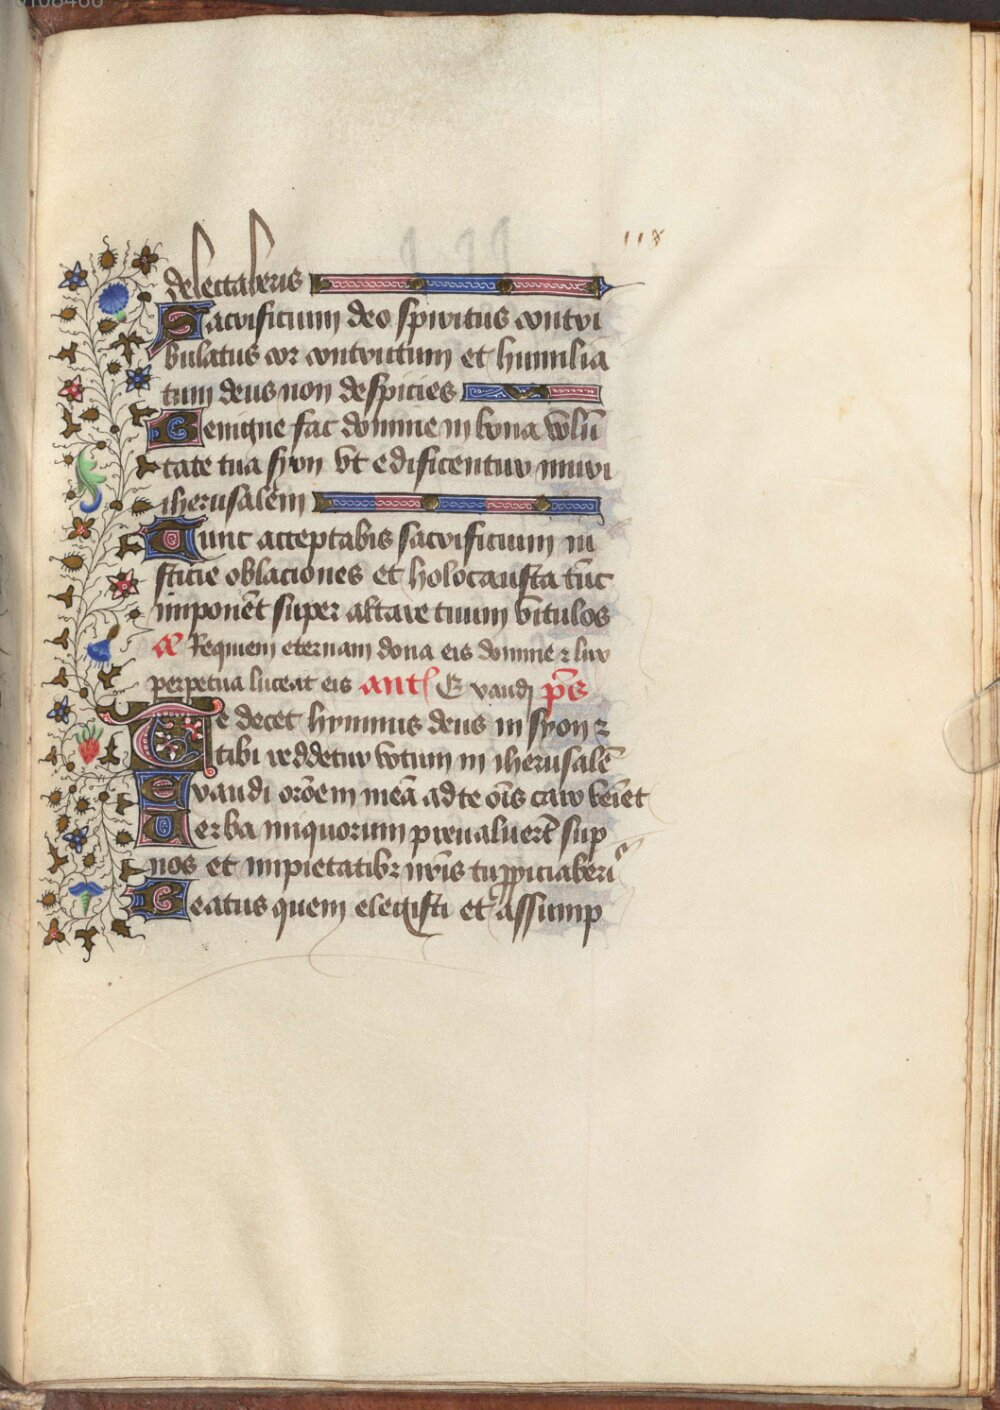 118
delectaberis
Sacrificium deo spiritus contri
bulatus cor contritum et humilia
tum deus non despicies
Benigne fac domine in bona volū
tate tua syon vt edificentur muri
iherusalem
Tunc acceptabis sacrificium iu
sticie oblaciones et holocausta tūc
imponēt super altare tuum vitulos
Requiem eternam dona eis domine ⁊ lux
perpetua luceat eis ant Exaudi ps̄
Te decet hymnus deus in syon ⁊
tibi reddetur votum in iherusalē
Exaudi orōem meā ad te oīs caro veīet
Verba iniquorum preualuerūt sup
nos et impietatibꝫ nr̄is tu ppiciaberis
Beatus quem elegisti et assump